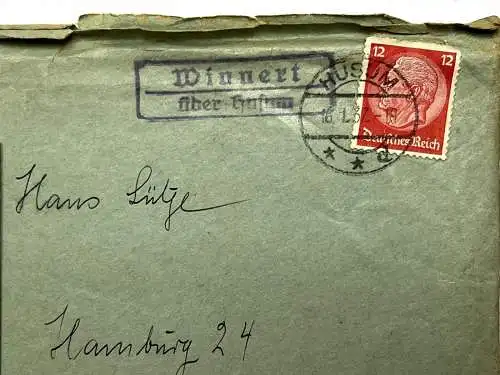 Winnert
über Husum
HUSUM
16.1.37.-18
* * d
12 12
Deutsches Reich
Hans Lütje
Hamburg 24